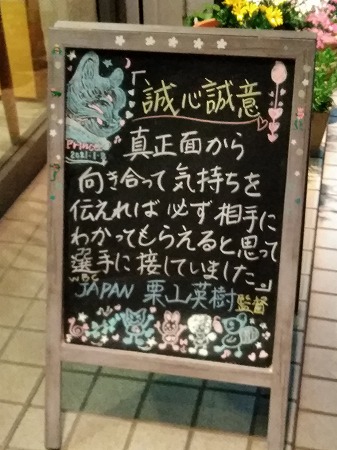 「誠心誠意
Prince
真正面から
向き合って気持ちを
伝えれば必ず相手に
わかってもらえると思って
選手に接していました。」
WBC
JAPAN 栗山英樹監督